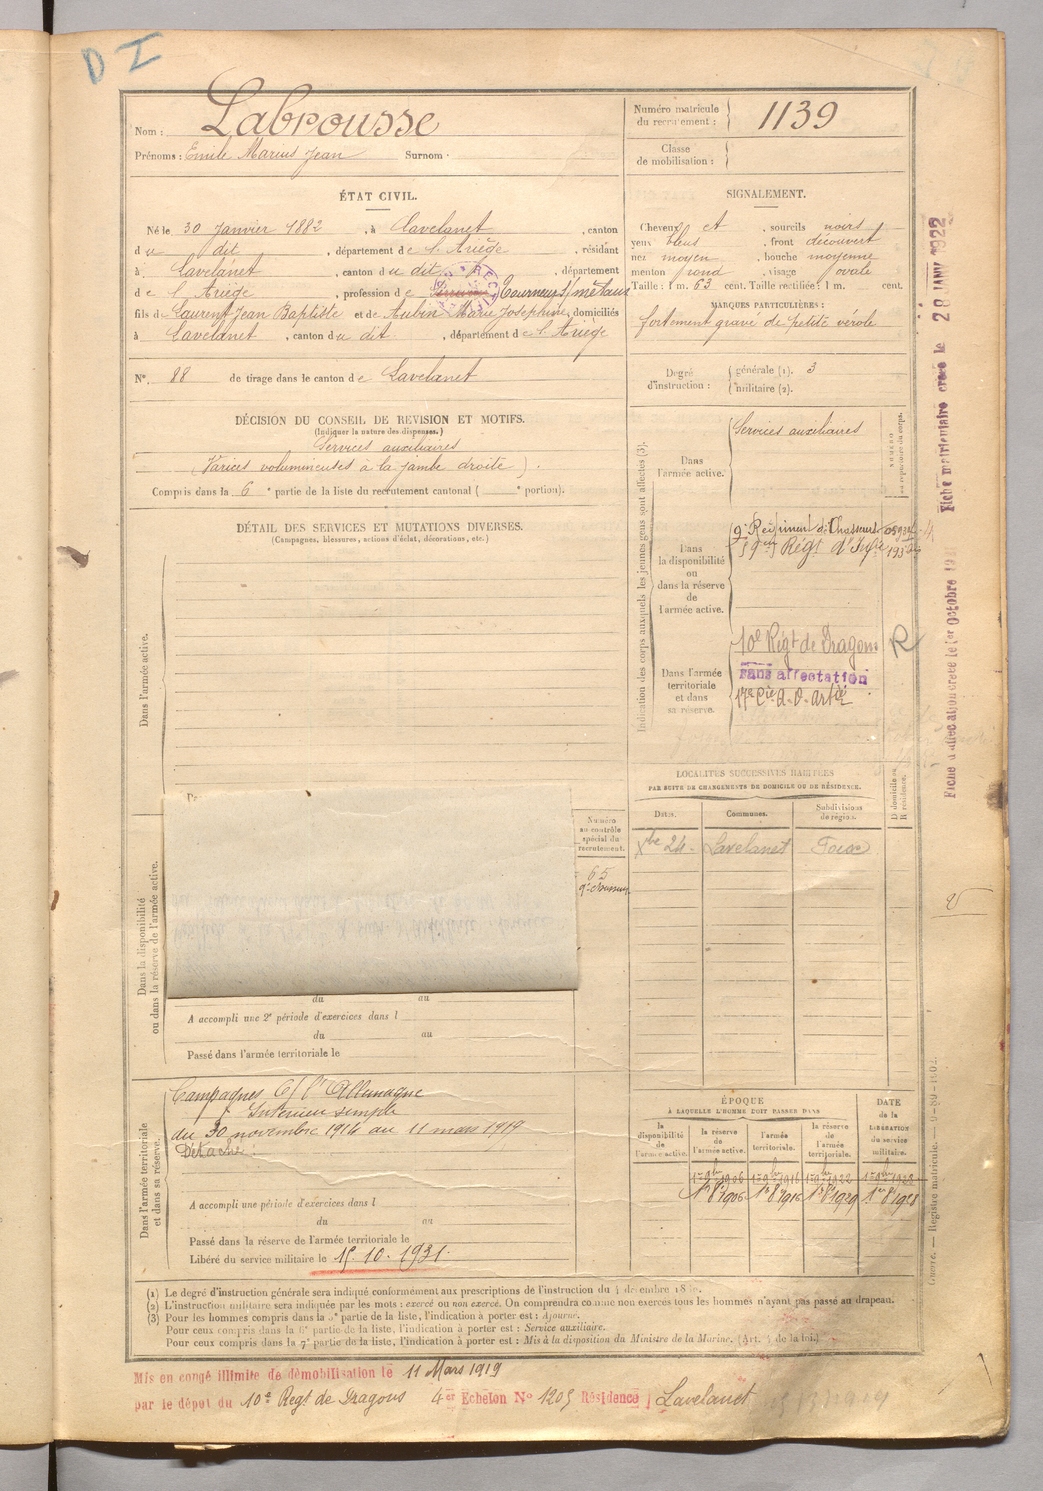 D I
Nom : Labrousse
Prénoms : Emile Marius Jean Surnom :
Numéro matricule
du recrutement : 1139
Classe
de mobilisation :
ÉTAT CIVIL.
Né le 30 Janvier 1882, à Lavelanet, canton
du dit, département de l'Ariège, résidant
à Lavelanet, canton du dit, département
de l'Ariège, profession de Tourneur s/ métaux
fils de Laurent Jean Baptiste et de Aubin Marie Josephine, domiciliés
à Lavelanet, canton du dit, département de l'Ariège
N° 88 de tirage dans le canton de Lavelanet
SIGNALEMENT.
Cheveux et, sourcils noirs
yeux bleus, front découvert
nez moyen, bouche moyenne
menton rond, visage ovale
Taille : 1 m. 63 cent. Taille rectifiée : 1 m. cent.
MARQUES PARTICULIÈRES :
fortement gravé de petite vérole
Degré
d'instruction : générale (1). 3
militaire (2).
DÉCISION DU CONSEIL DE REVISION ET MOTIFS.
(Indiquer la nature des dispenses.)
Services auxiliaires
(Varices volumineuses à la jambe droite).
Compris dans la 6e partie de la liste du recrutement cantonal ( e portion).
DÉTAIL DES SERVICES ET MUTATIONS DIVERSES.
(Campagnes, blessures, actions d'éclat, décorations, etc.)
Dans l'armée active.
Indication des corps auxquels les jeunes gens sont affectés (3).
Dans
l'armée active.
Services auxiliaires
NUMÉRO
au répertoire du corps.
Dans
la disponibilité
ou
dans la réserve
de
l'armée active.
9e Régiment de Chasseurs
59eme Régt d'Infie
Dans l'armée
territoriale
et dans
sa réserve.
10e Régt de Dragons R
sans affectation
17e Cie a.o. artie
LOCALITÉS SUCCESSIVES HABITÉES
PAR SUITE DE CHANGEMENTS DE DOMICILE OU DE RÉSIDENCE.
Dates. Communes. Subdivisions
de région. D domicile ou
R résidence.
Xbre 24. Lavelanet Foix
Numéro
au contrôle
spécial du
recrutement.
65
Dans la disponibilité
ou dans la réserve de l'armée active.
du au
A accompli une 2e période d'exercices dans l
du au
Passé dans l'armée territoriale le
Dans l'armée territoriale
et dans sa réserve.
Campagnes C/ l'Allemagne
Intérieur simple
du 30 novembre 1914 au 11 mars 1919
Détaché
A accompli une période d'exercices dans l
du au
Passé dans la réserve de l'armée territoriale le
Libéré du service militaire le 15.10.1931.
ÉPOQUE
À LAQUELLE L'HOMME DOIT PASSER DANS
DATE
de la
LIBÉRATION
du service
militaire.
la
disponibilité
de
l'armée active.
la réserve
de
l'armée active.
l'armée
territoriale.
la réserve
de
l'armée
territoriale.
1er 9bre 1906 1er 9bre 1916 1er 9bre 1922 1er 9bre 1928
(1) Le degré d'instruction générale sera indiqué conformément aux prescriptions de l'instruction du 4 décembre
(2) L'instruction militaire sera indiquée par les mots : exercé ou non exercé. On comprendra comme non exercés tous les hommes n'ayant pas passé au drapeau.
(3) Pour les hommes compris dans la 5e partie de la liste, l'indication à porter est : Ajourné.
Pour ceux compris dans la 6e partie de la liste, l'indication à porter est : Service auxiliaire.
Pour ceux compris dans la 7e partie de la liste, l'indication à porter est : Mis à la disposition du Ministre de la Marine. (Art. 4 de la loi.)
Mis en congé illimité de démobilisation le 11 Mars 1919
par le dépot du 10e Regt de Dragons 4e Echelon N° 1205 Résidence Lavelanet
Fiche matriculaire créée le 28 JANV 1922
Fiche d'affectation créée le 1er Octobre
Guerre. — Registre matricule. —